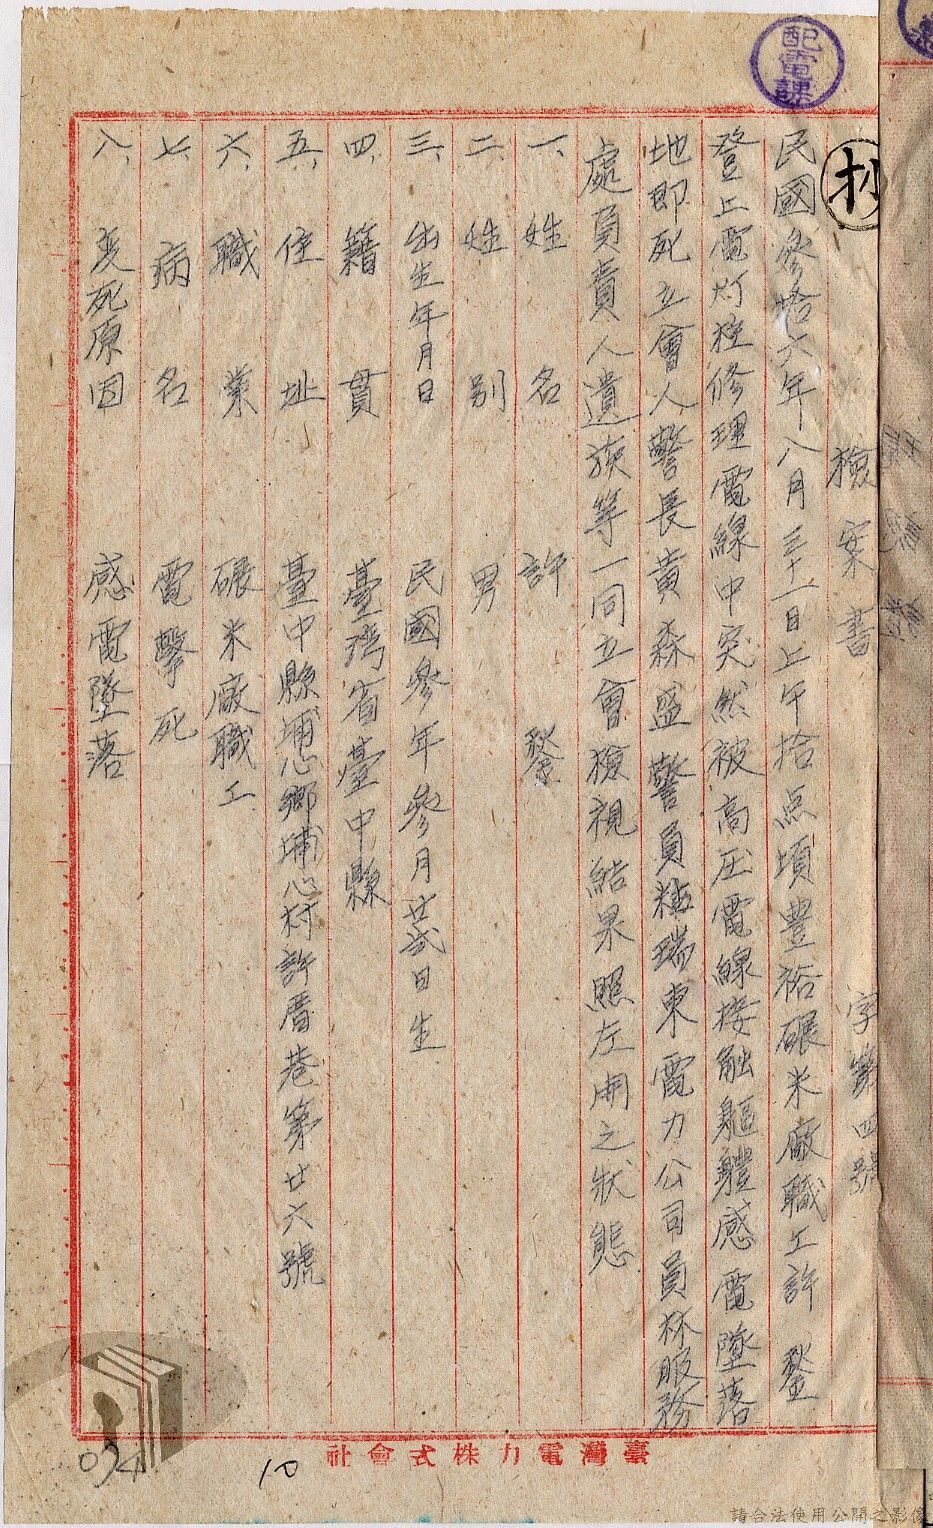 配電課
抄
檢案書　字第四號
民國參拾六年八月三十一日上午拾点頃豐裕碾米廠職工許
登上電灯柱修理電線中突然被高压電線接触軀體感電墜落
地即死立會人警長黄森盛警員粘瑞東電力公司員林服務
處員責人遺族等一同立會檢視結果照左開之狀態
一、姓名　許
二、姓别　男
三、出生年月日　民國參年參月廿弍日生
四、籍貫　臺灣省臺中縣
五、住址　臺中縣埔心鄉埔心村許厝巷第廿六號
六、職業　碾米廠職工
七、病名　電擊死
八、变死原因　感電墜落
臺灣電力株式會社
10
034
請合法使用公開之影像